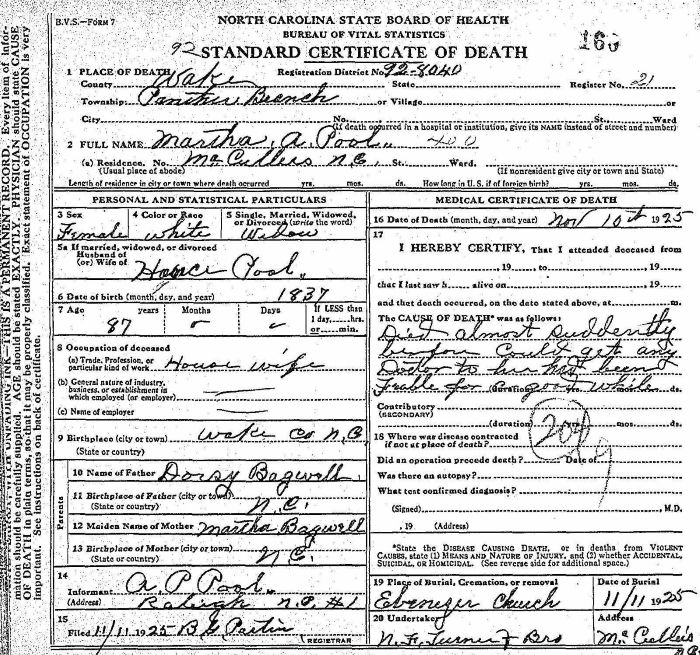 B.V.S.—FORM 7
NORTH CAROLINA STATE BOARD OF HEALTH
BUREAU OF VITAL STATISTICS
92 STANDARD CERTIFICATE OF DEATH
160
1 PLACE OF DEATH
County Wake Registration District No. 92-8040 State Register No. 21
Township Panther Branch or Village or
City No. St. Ward
(If death occurred in a hospital or institution, give its NAME instead of street and number)
2 FULL NAME Martha A. Pool 400
(a) Residence. No. Mc Cullers N.C. St. Ward.
(Usual place of abode) (If nonresident give city or town and State)
Length of residence in city or town where death occurred yrs. mos. ds. How long in U. S. if of foreign birth? yrs. mos. ds.
PERSONAL AND STATISTICAL PARTICULARS
3 Sex 4 Color or Race 5 Single, Married, Widowed,
or Divorced (write the word)
Female White Widow
5a If married, widowed, or divorced
Husband of
(or) Wife of Pool
6 Date of birth (month, day, and year) 1837
7 Age years Months Days If LESS than
1 day, hrs.
or min.
87
8 Occupation of deceased
(a) Trade, Profession, or
particular kind of work House wife
(b) General nature of industry,
business, or establishment in
which employed (or employer)
(c) Name of employer
9 Birthplace (city or town) Wake Co N.C.
(State or country)
Parents
10 Name of Father Bagwell
11 Birthplace of Father (city or town)
(State or country) N.C.
12 Maiden Name of Mother Martha Bagwell
13 Birthplace of Mother (city or town)
(State or country) N.C.
14
Informant A. P. Pool
(Address) Raleigh N.C. #1
15
Filed 11/11 1925 B G Partin
REGISTRAR
MEDICAL CERTIFICATE OF DEATH
16 Date of Death (month, day, and year) Nov 10th 1925
17
I HEREBY CERTIFY, That I attended deceased from
, 19 , to , 19
that I last saw h alive on , 19
and that death occurred, on the date stated above, at m.
The CAUSE OF DEATH* was as follows:
Died almost suddently
before could get any
Doctor to her has been
for a good while
(duration) yrs. mos. ds.
Contributory
(SECONDARY)
(duration) yrs. mos. ds.
18 Where was disease contracted
if not at place of death?
Did an operation precede death? Date of
Was there an autopsy?
What test confirmed diagnosis?
(Signed) , M.D.
, 19 (Address)
*State the DISEASE CAUSING DEATH, or in deaths from VIOLENT
CAUSES, state (1) MEANS AND NATURE OF INJURY, and (2) whether ACCIDENTAL,
SUICIDAL, OR HOMICIDAL. (See reverse side for additional space.)
19 Place of Burial, Cremation, or removal Date of Burial
Ebenezer Church 11/11 1925
20 Undertaker Address
N. F. Turner & Bro Mc Cullers
NC
mation should be carefully supplied. AGE should be stated EXACTLY. PHYSICIANS should state CAUSE
OF DEATH in plain terms, so that it may be properly classified. Exact statement of OCCUPATION is very
important. See instructions on back of certificate.